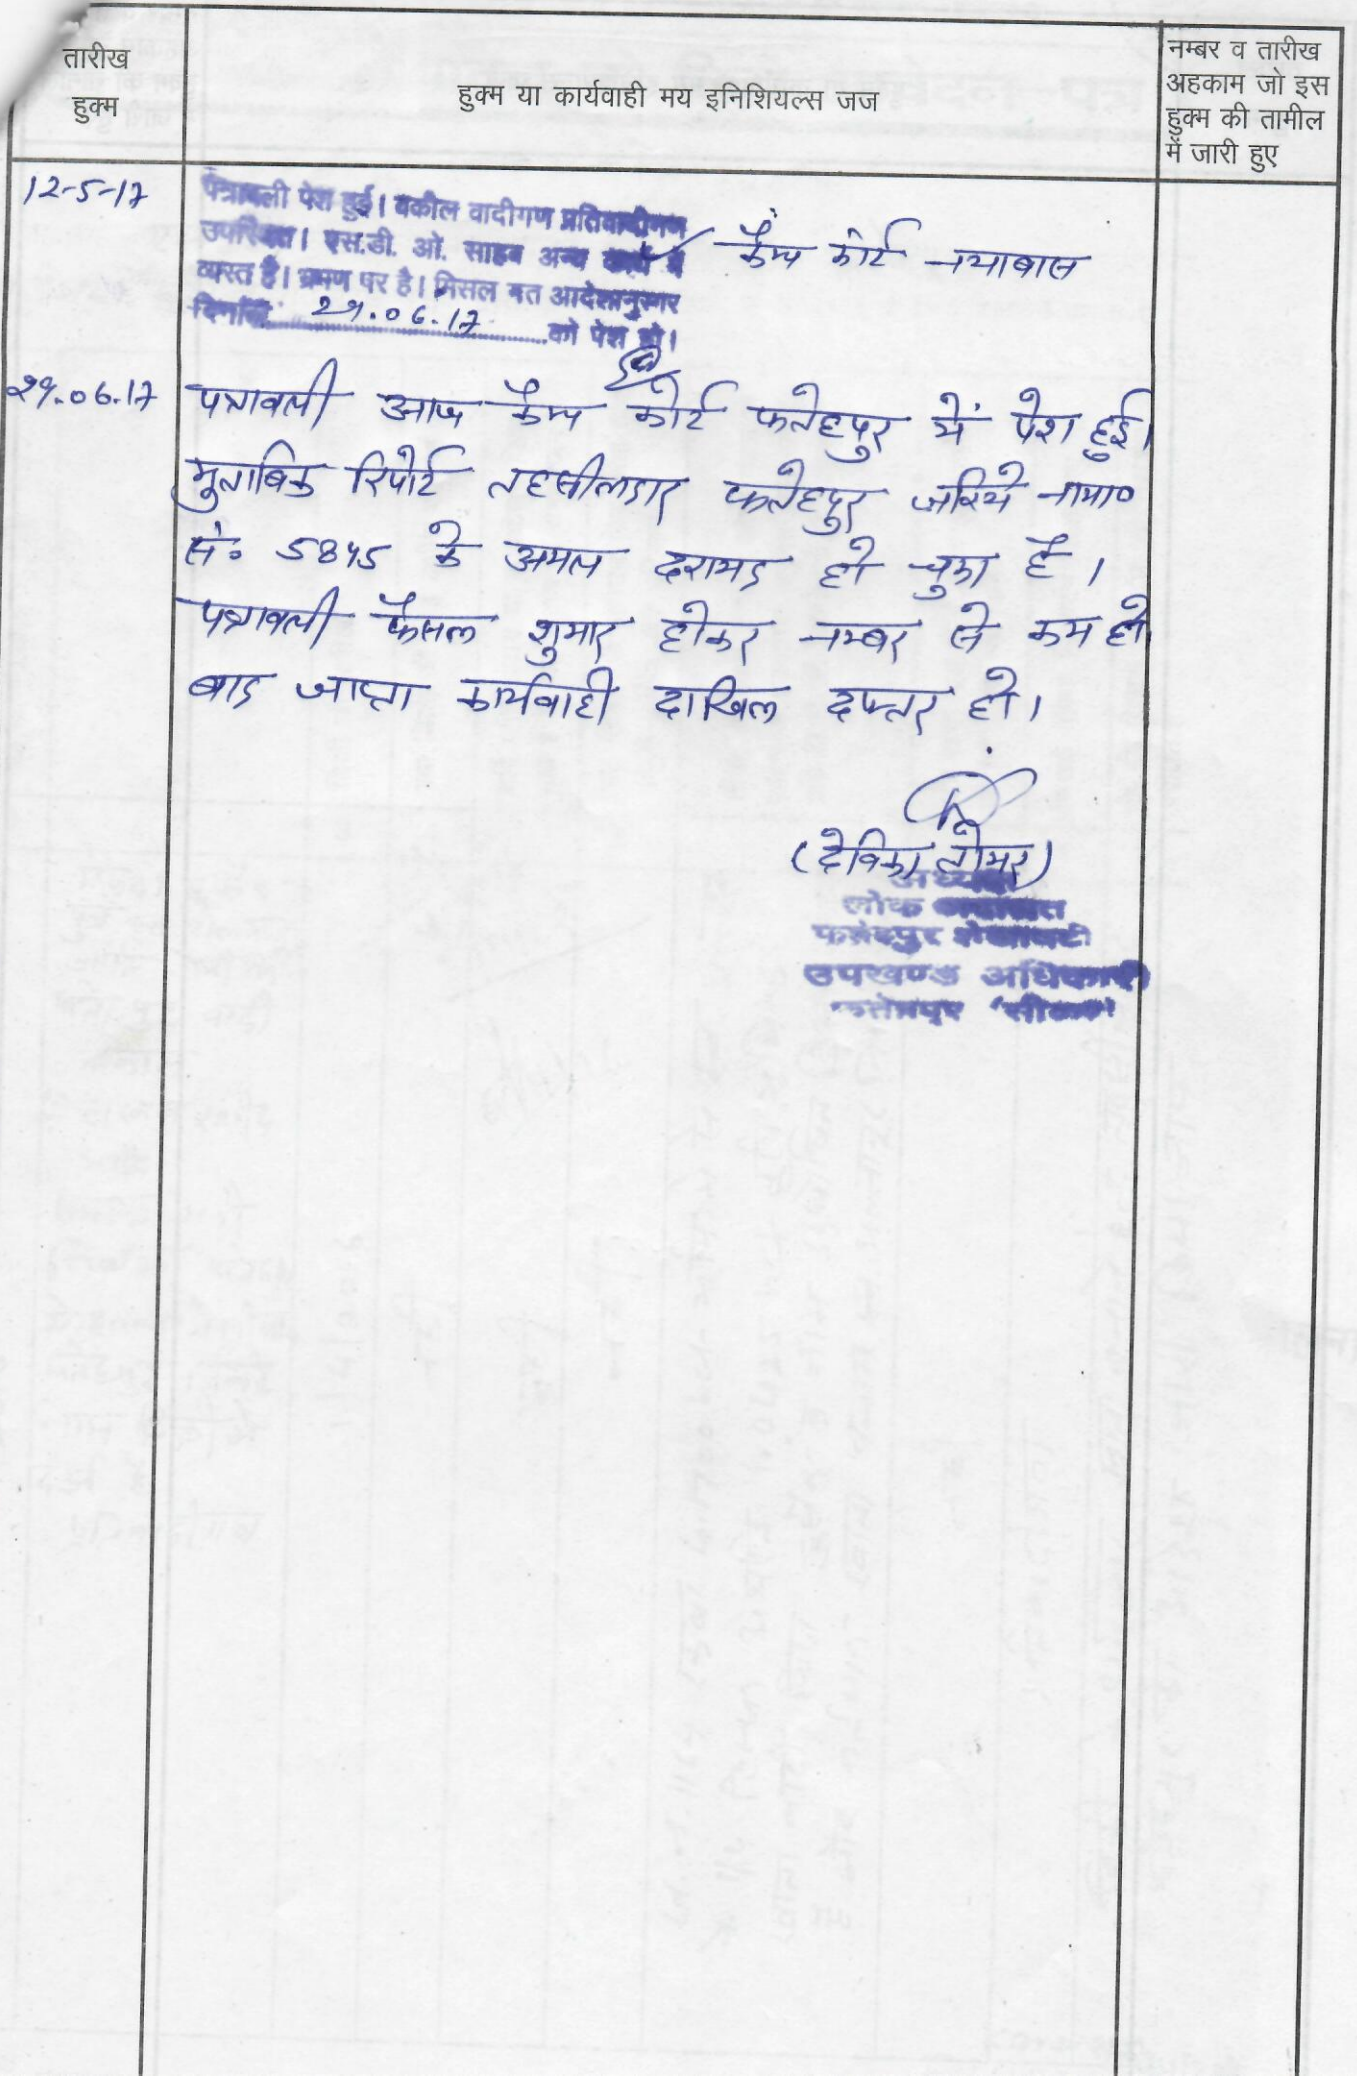 तारीख
हुक्म
हुक्म या कार्यवाही मय इनिशियल्स जज
नम्बर व तारीख
अहकाम जो इस
हुक्म की तामील
में जारी हुए
12-5-17
पत्रावली पेश हुई। वकील वादीगण प्रतिवादीगण
उपस्थित। एस.डी. ओ. साहब अन्य कार्य में
व्यस्त है। भ्रमण पर है। मिसल गत आदेशानुसार
दिनांक 29.06.17 को पेश हो।
कैम्प कोर्ट नयाबास
29.06.17
पत्रावली आज कैम्प कोर्ट फतेहपुर में पेश हुई।
मुताबिक रिपोर्ट तहसीलदार फतेहपुर जरिये नामा०
सं० 5845 के अमल दरामद हो चुका है।
पत्रावली फैसल शुमार होकर नम्बर से कम हो
बाद जाप्ता कार्यवाही दाखिल दफ्तर हो।
(देविका तोमर)
अध्यक्ष
लोक अदालत
फतेहपुर शेखावटी
उपखण्ड अधिकारी
फतेहपुर (सीकर)